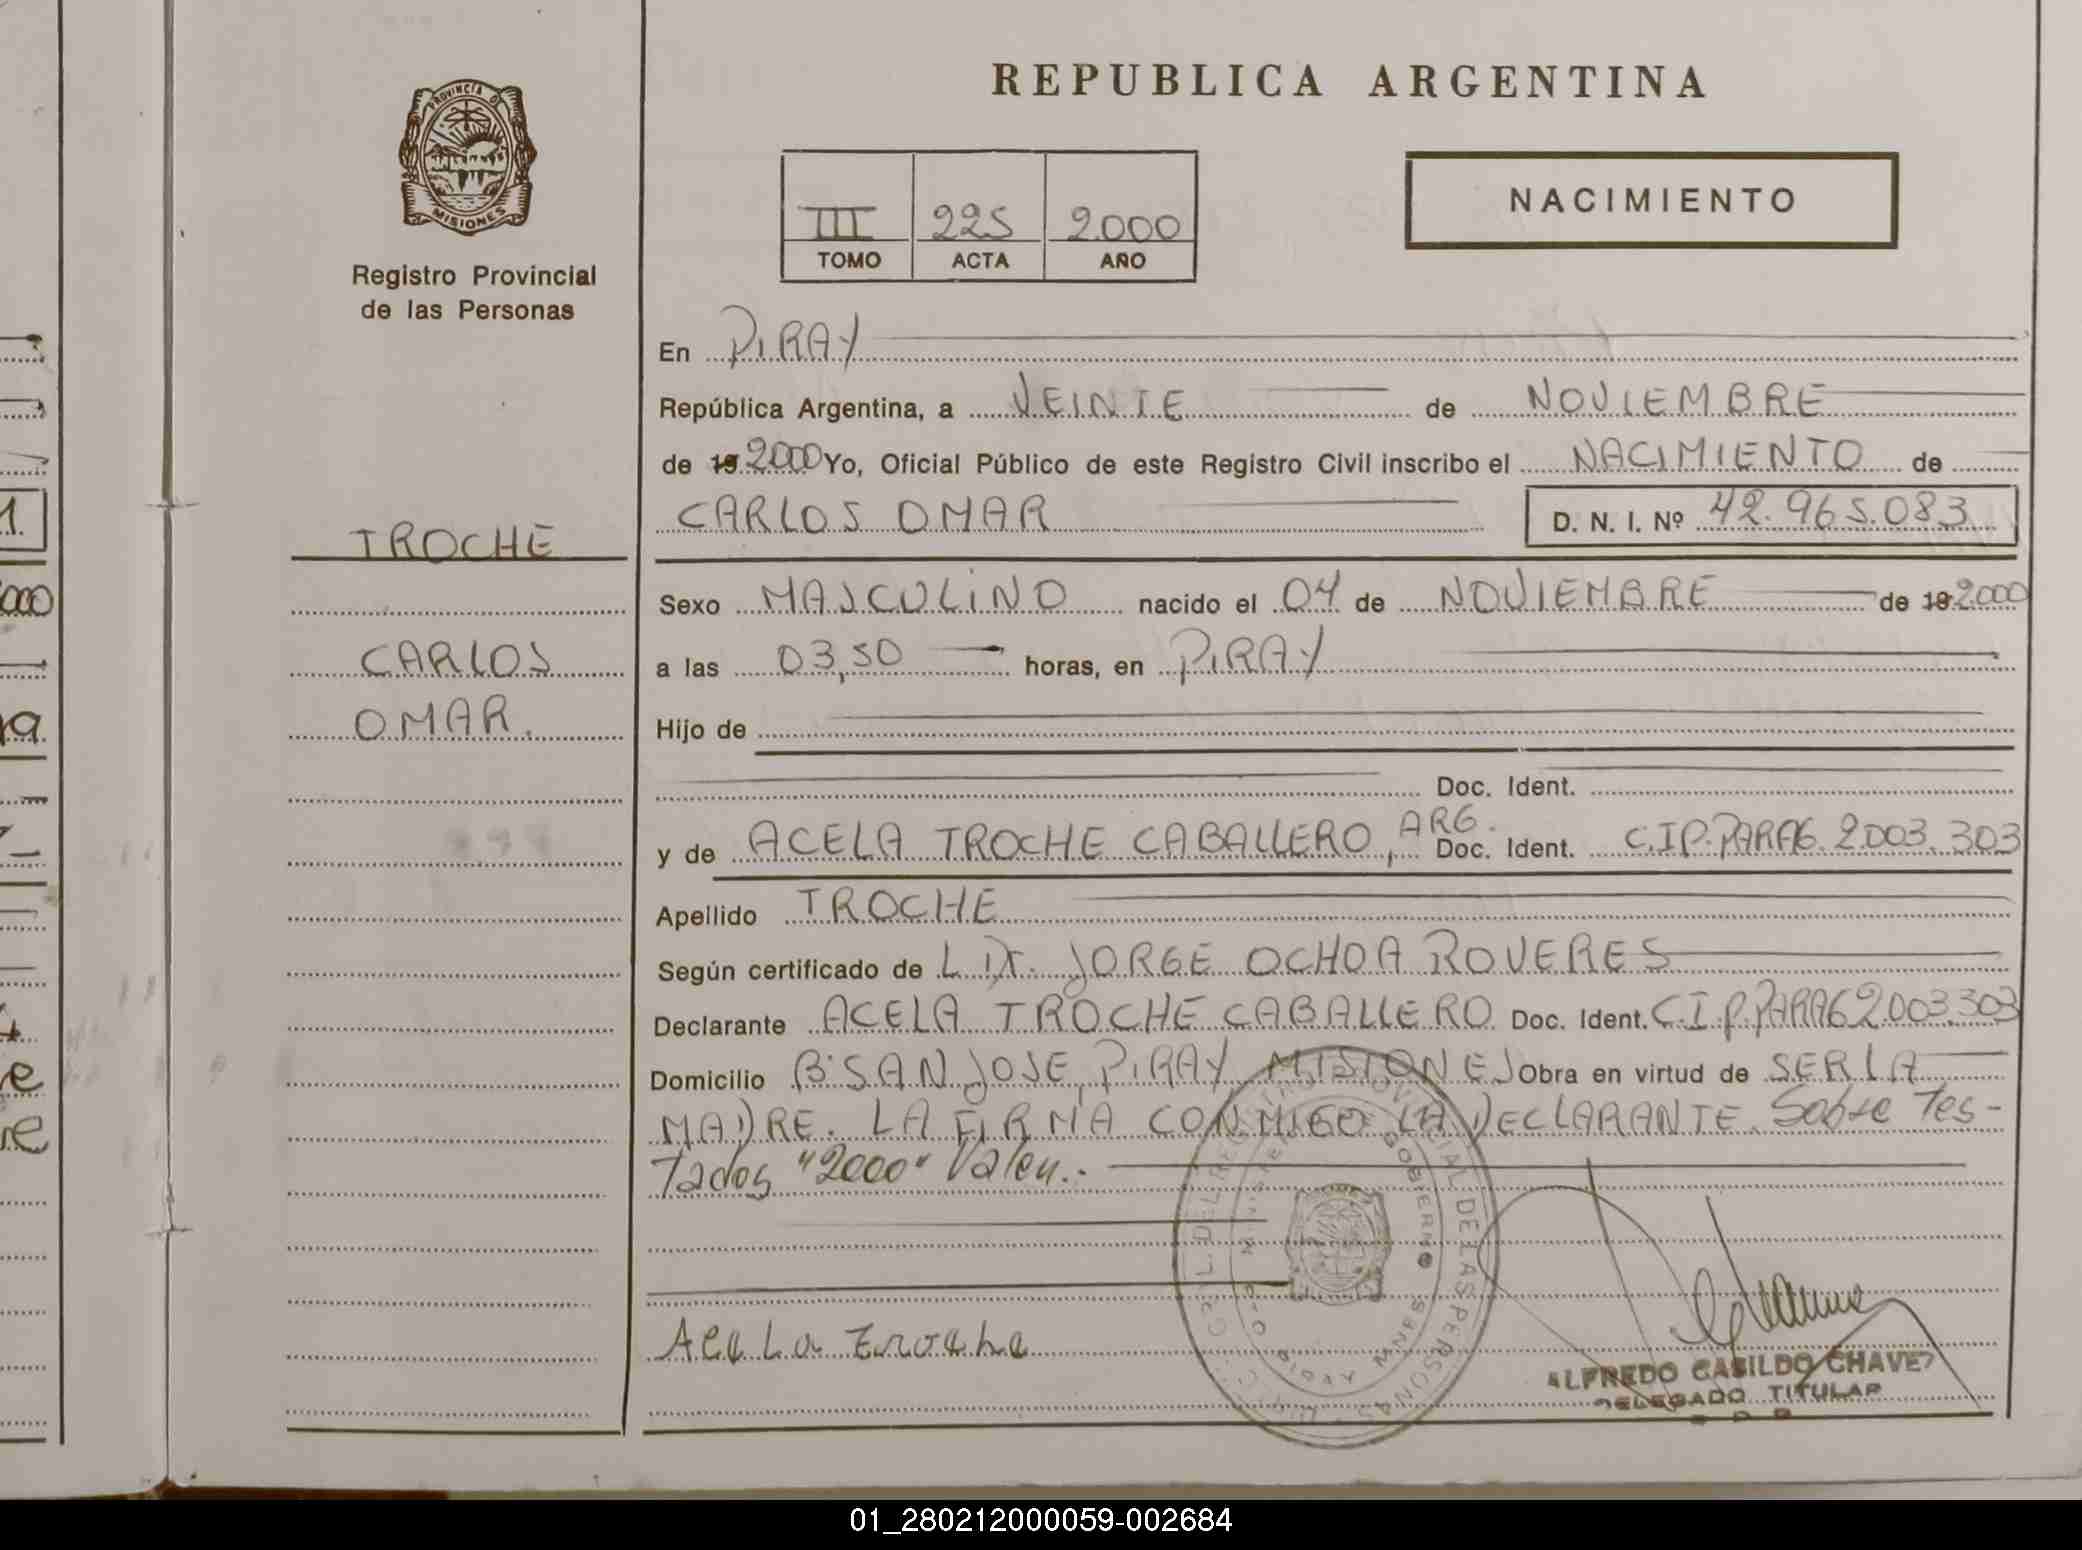 REPUBLICA ARGENTINA
PROVINCIA DE
MISIONES
Registro Provincial
de las Personas
III 225 2.000
TOMO ACTA AÑO
NACIMIENTO
En PIRAY
República Argentina, a VEINTE de NOVIEMBRE
de 19 2000 Yo, Oficial Público de este Registro Civil inscribo el NACIMIENTO de
CARLOS OMAR D. N. I. Nº 42.965.083
TROCHE
CARLOS
OMAR.
Sexo MASCULINO nacido el 04 de NOVIEMBRE de 19 2.000
a las 03,50 horas, en PIRAY
Hijo de
Doc. Ident.
y de ACELA TROCHE CABALLERO, ARG. Doc. Ident. C.I.P. PARAG. 2.003.303
Apellido TROCHE
Según certificado de JORGE OCHOA ROVERES
Declarante ACELA TROCHE CABALLERO Doc. Ident. C.I.P. PARAG 2.003.303
Domicilio Bº SAN JOSE, PIRAY MISIONES Obra en virtud de SER LA
MADRE. LA FIRMA CONMIGO LA DECLARANTE. Sobre Tes-
Tados "2000" Valen.-
Acela Troche
ALFREDO CASILDO CHAVEZ
DELEGADO TITULAR
01_280212000059-002684